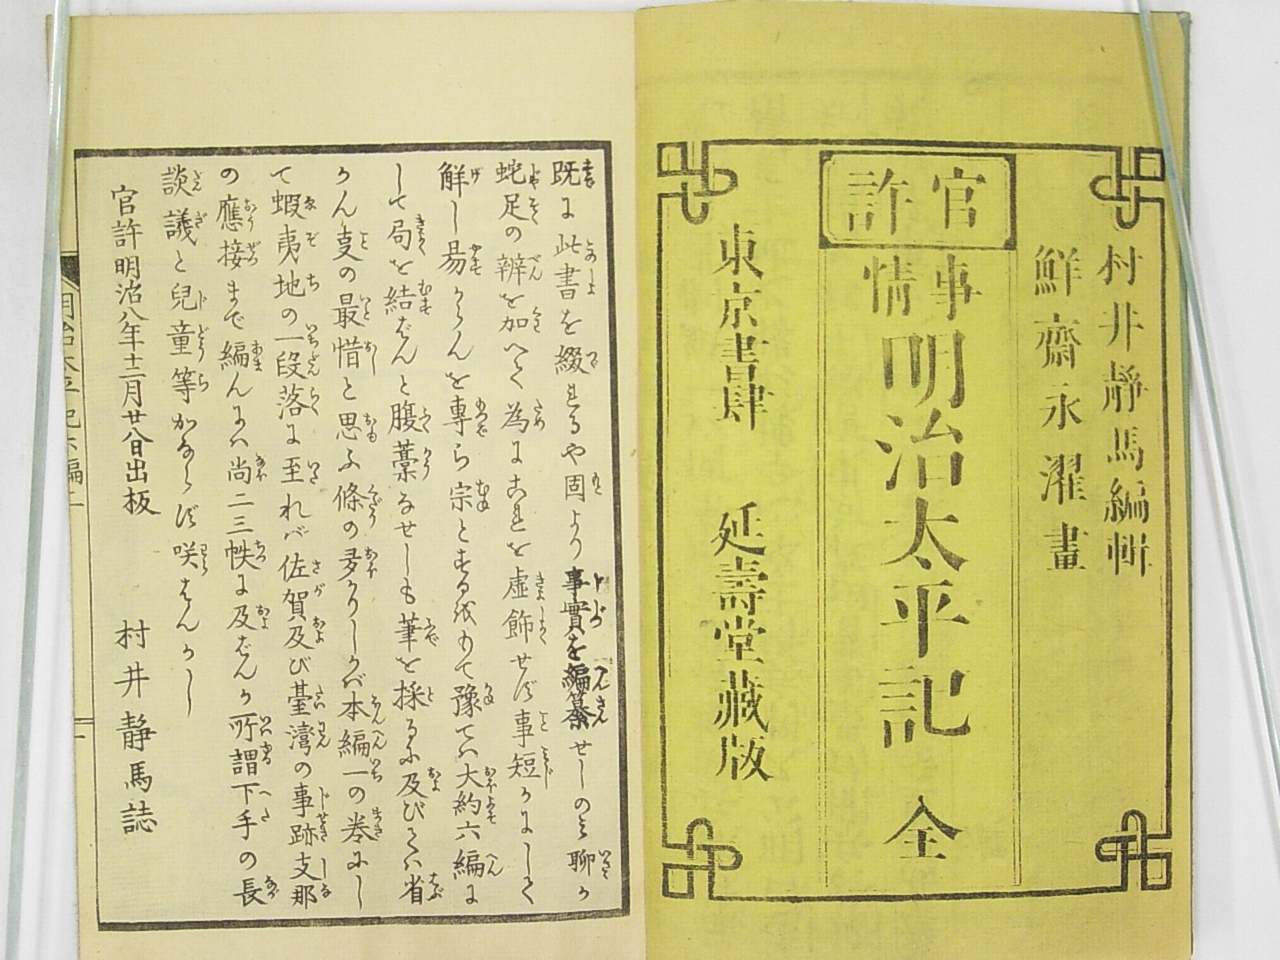 村井靜馬編輯
鮮齋永濯畫
官許
事情
明治太平記 全
東京書肆 延壽堂藏版
既に此書を綴るや固より事實を編纂せしのミ聊か
蛇足の辨を加へて為に之を虚飾せず事短かにして
解し易からんを專ら宗とする故もて豫てハ大約六編に
して局を結ばんと腹藁なせしも筆を採るに及びてハ省
かん叓の最惜と思ふ條の多かりしかバ本編一の巻にし
て蝦夷地の一段落に至れバ佐賀及び臺灣の事跡支那
の應接まで編んにハ尚二三帙に及ばんか所謂下手の長
談議と兒童等かならず咲はんかし
官許明治八年十二月廿八日出板 村井静馬誌
明治太平記六編二